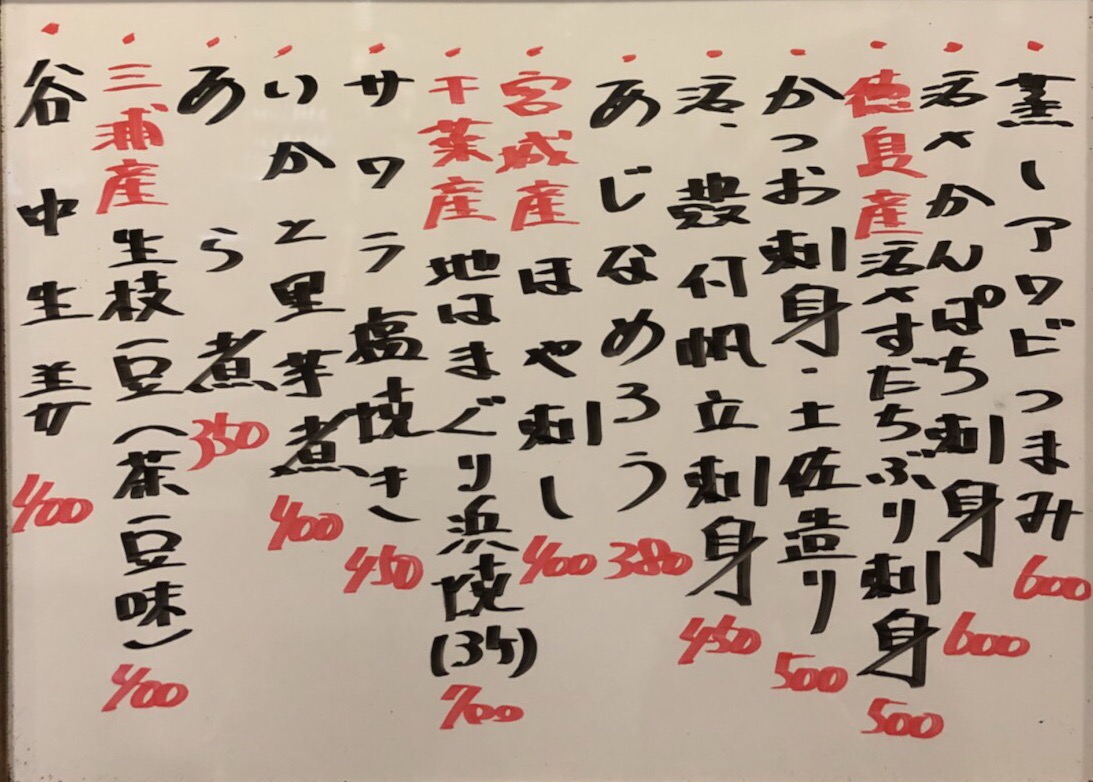 蒸しアワビつまみ 600
活〆かんぱち刺身 600
徳島産 活〆すだちぶり刺身 500
かつお刺身・土佐造り 500
活・殻付帆立刺身 450
あじなめろう 380
宮城産 ほや刺し 400
千葉産 地はまぐり浜焼(3ケ) 700
サワラ塩焼き 450
いかと里芋煮 400
あら煮 350
三浦産 生枝豆(茶豆味) 400
谷中生姜 400